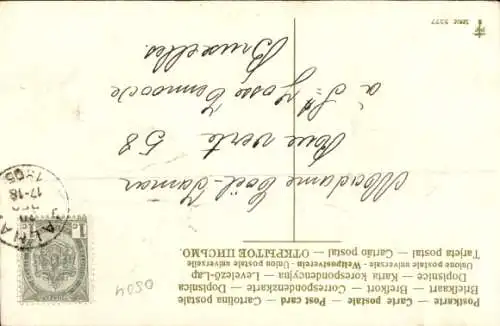 Postkarte — Carte postale — Post card — Cartolina postale
Briefkaart — Brefkort — Correspondenzkarte — Dopisnica
Dopisnice — Karta korespondencyjna — Levelező-Lap
Union postale universelle - Weltpostverein - Union postale universelle
Tarjeta postal — Cartão postal — ОТКРЫТОЕ ПИСЬМО.
1
1905
17-18
Madame
Rue verte 58
à St Josse
Bruxelles.
0504
Serie 5377